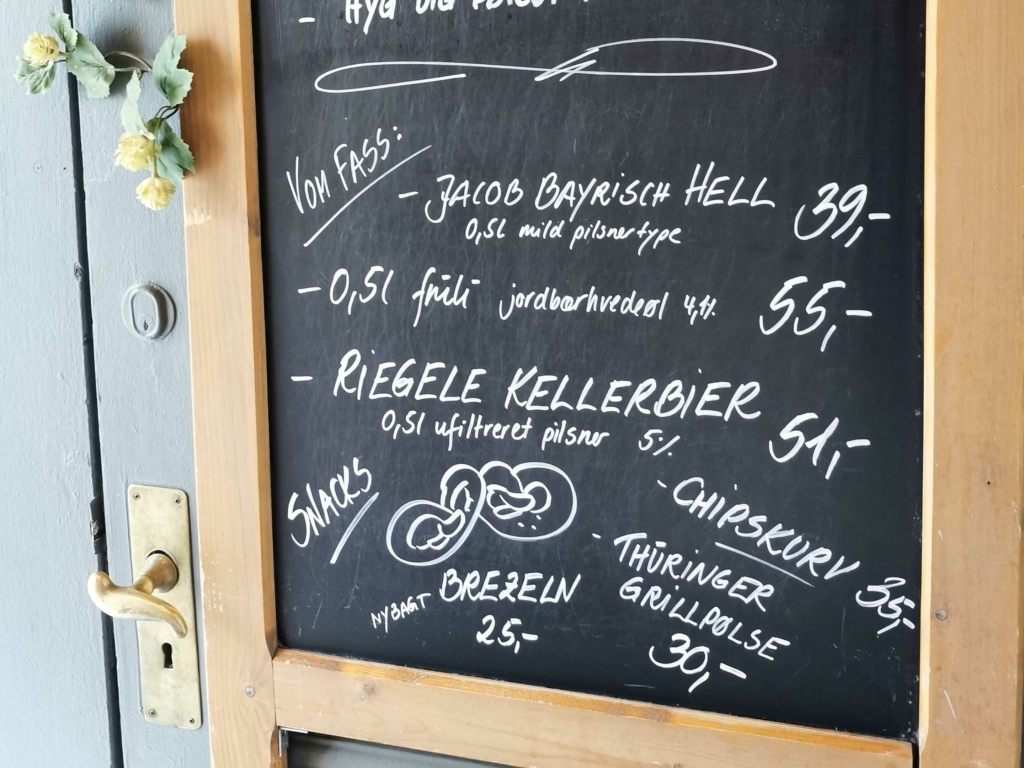 - HYG DIG
VOM FASS:
- JACOB BAYRISCH HELL 39,-
0,5L mild pilsnertype
- 0,5l früli jordbærhvedeøl 4,1%. 55,-
- RIEGELE KELLERBIER
0,5l ufiltreret pilsner 5% 51,-
SNACKS
NYBAGT BREZELN
25,-
- CHIPSKURV 35,-
- THÜRINGER
GRILLPØLSE
30,-